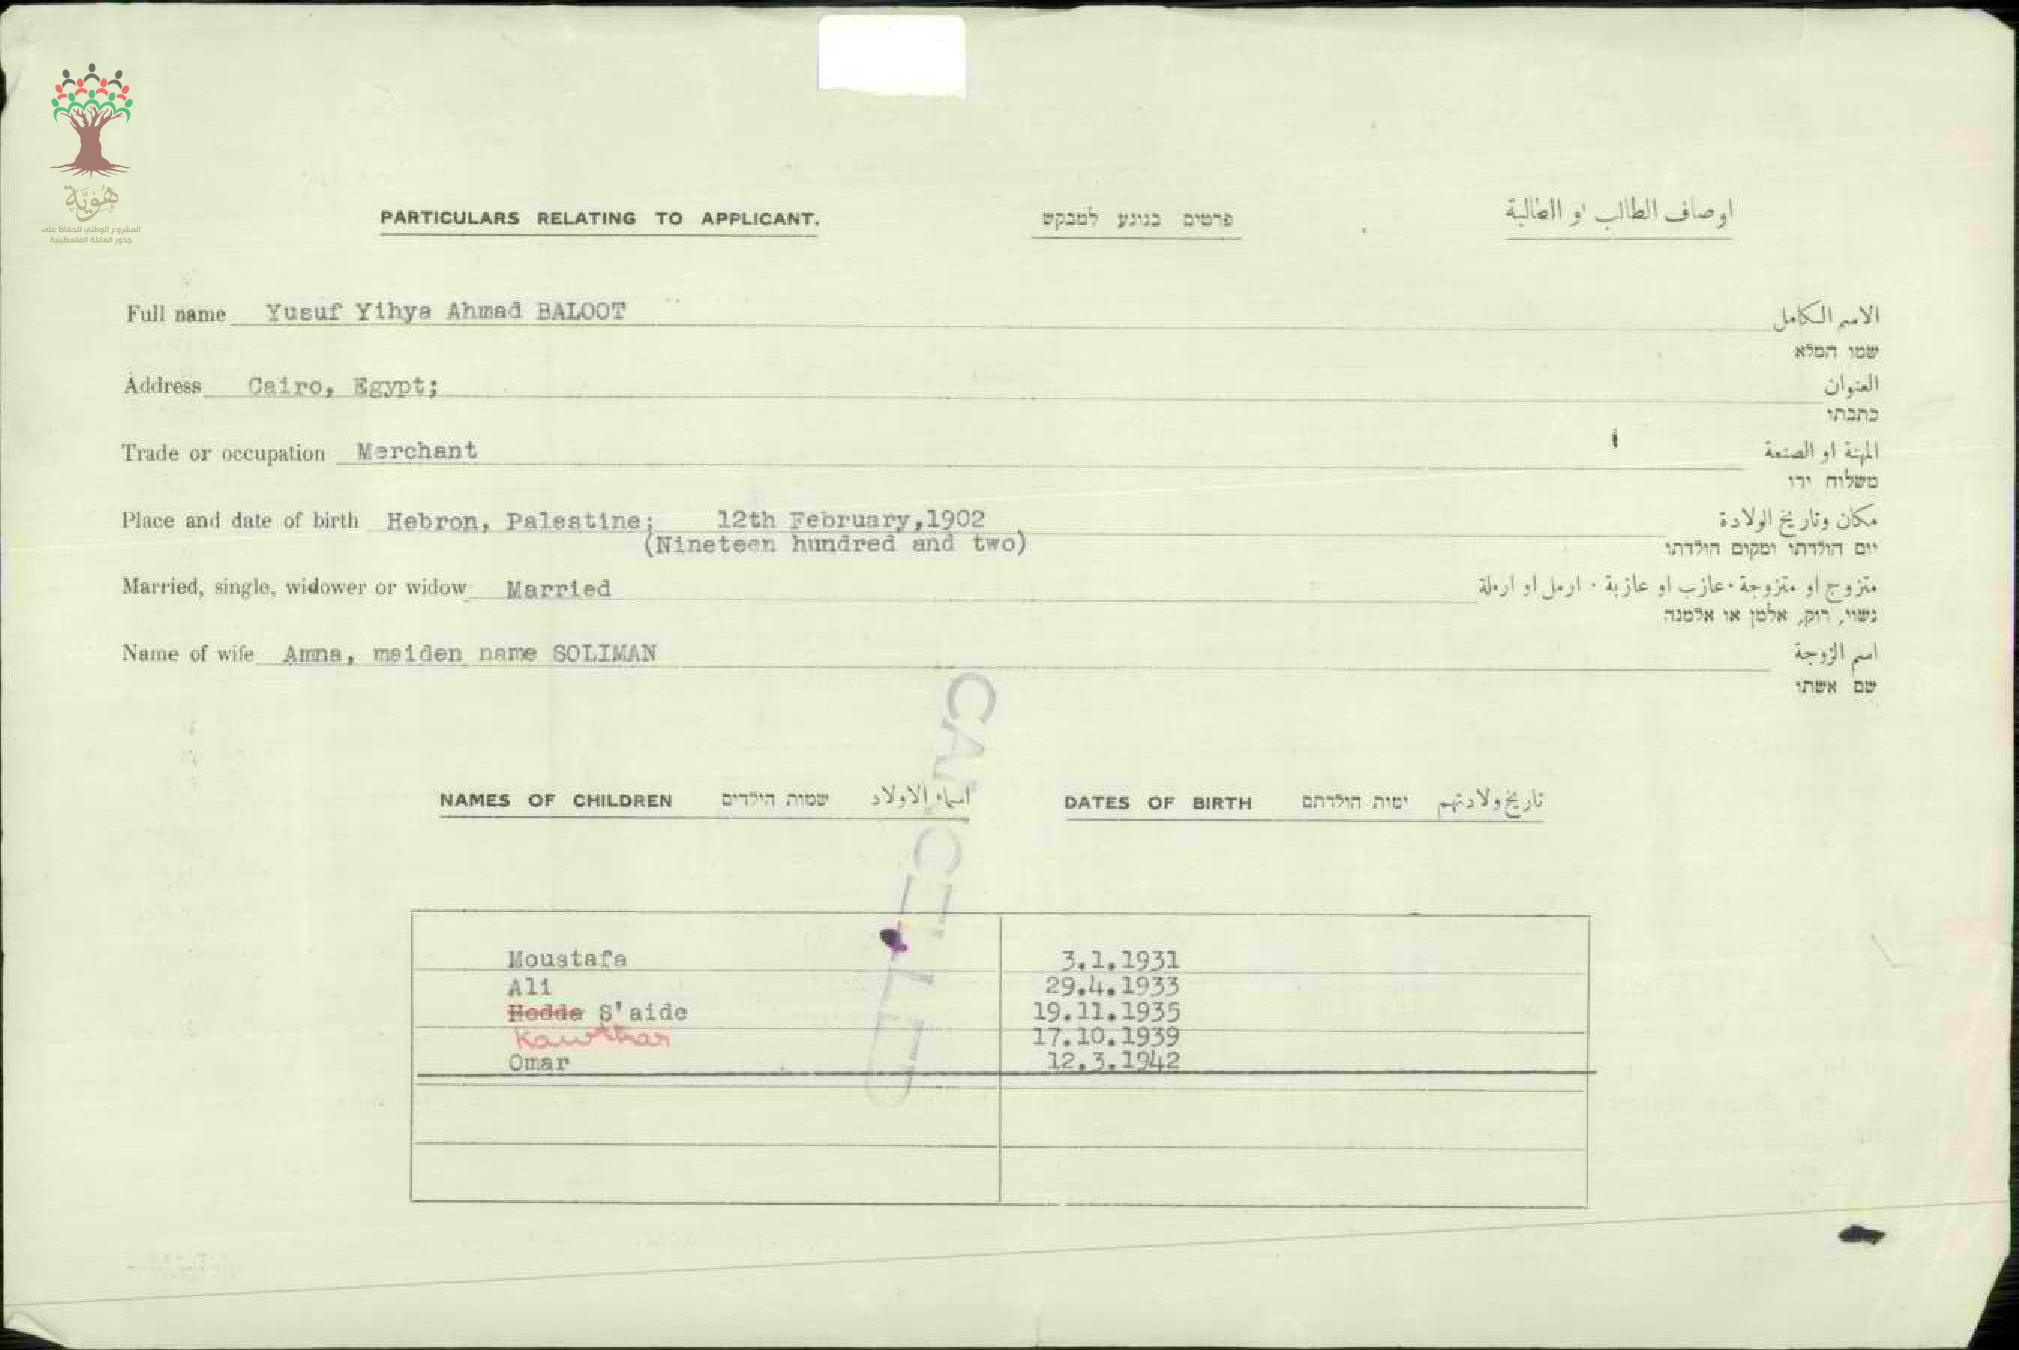 هُوِيَّة
المشروع الوطني للحفاظ على
جذور العائلة الفلسطينية
PARTICULARS RELATING TO APPLICANT. פרטים בנוגע למבקש اوصاف الطالب او الطالبة
Full name Yusuf Yihya Ahmad BALOOT الاسم الكامل
שמו המלא
Address Cairo, Egypt; العنوان
כתבתו
Trade or occupation Merchant المهنة او الصنعة
משלוח ידו
Place and date of birth Hebron, Palestine; 12th February,1902 مكان وتاريخ الولادة
(Nineteen hundred and two) יום הולדתו ומקום הולדתו
Married, single, widower or widow Married متزوج او متزوجة · عازب او عازبة · ارمل او ارملة
נשוי, רוק, אלמן או אלמנה
Name of wife Amna, maiden name SOLIMAN اسم الزوجة
שם אשתו
CANCELLED
NAMES OF CHILDREN שמות הילדים اسماء الاولاد DATES OF BIRTH ימות הולדתם تاريخ ولادتهم
Moustafa 3.1.1931
Ali 29.4.1933
Hodda S'aide 19.11.1935
Kawthar 17.10.1939
Omar 12.3.1942